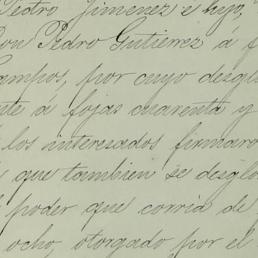 Pedro Jimenez é hijo,
Don Pedro Gutierrez á f
Campos, por cuyo desglo
te á fojas cuarenta y
los interesados firmaro
que tambien se desglo
poder que corria de
ocho, otorgado por el